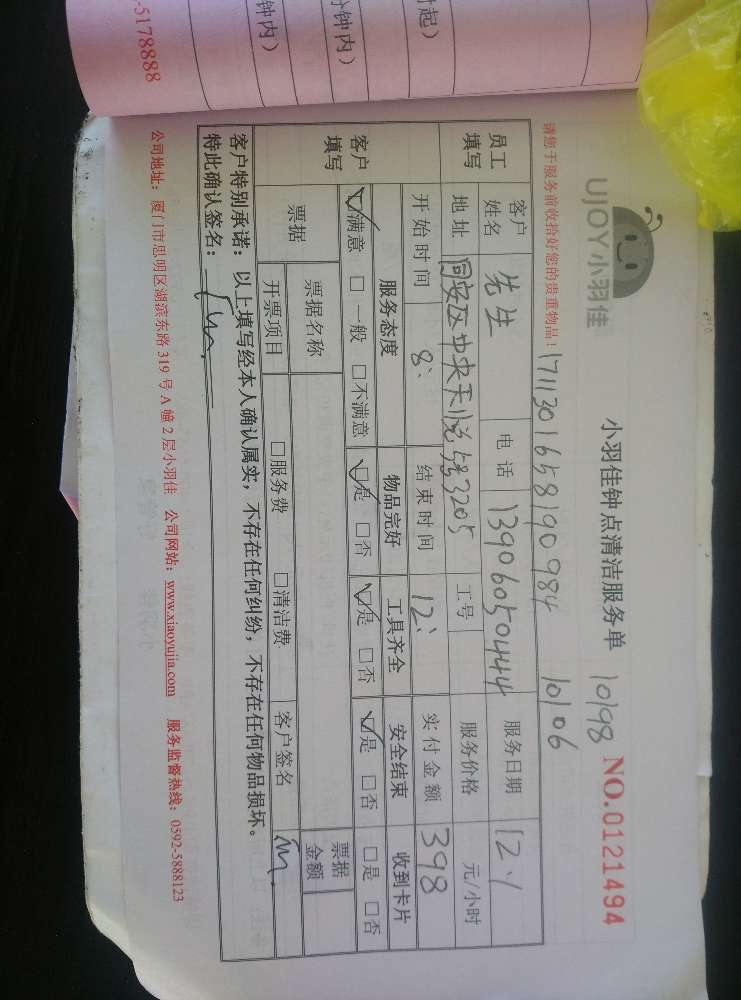 UJOY小羽佳
小羽佳钟点清洁服务单 10198 NO.0121494
1711301658190984 10106
请您于服务前收拾好您的贵重物品!
员工填写 客户姓名 先生 电话 13906050444 服务日期 12.1
地址 同安区中央天悦5#3205 工号 服务价格 元/小时
开始时间 8: 结束时间 12: 实付金额 398
客户填写 服务态度 物品完好 工具齐全 安全结束 收到卡片
☑满意 □一般 □不满意 ☑是 □否 ☑是 □否 ☑是 □否 □是 □否
票据 票据名称 票据金额
开票项目 □服务费 □清洁费 客户签名
客户特别承诺:以上填写经本人确认属实,不存在任何纠纷,不存在任何物品损坏。
特此确认签名:
公司地址:厦门市思明区湖滨东路 319 号 A 幢 2 层小羽佳 公司网站:www.xiaoyujia.com 服务监督热线:0592-5888123
时起)
分钟内)
钟内)
-5178888